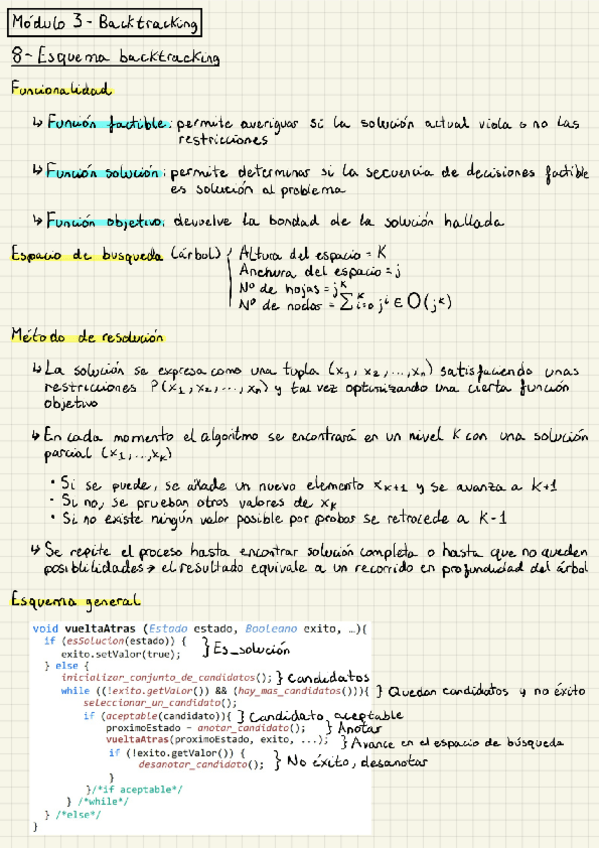 Módulo 3 - Backtracking
8- Esquema backtracking
Funcionalidad
↳ Función factible: permite averiguar si la solución actual viola o no las
restricciones
↳ Función solución: permite determinar si la secuencia de decisiones factible
es solución al problema
↳ Función objetivo: devuelve la bondad de la solución hallada
Espacio de busqueda (árbol)
Altura del espacio = K
Anchura del espacio = j
Nº de hojas = j^k
Nº de nodos = ∑^k_{i=0} j^i ∈ O(j^k)
Método de resolución
↳ La solución se expresa como una tupla (x₁, x₂, ..., xₙ) satisfaciendo unas
restricciones P(x₁, x₂, ..., xₙ) y tal vez optimizando una cierta función
objetivo
↳ En cada momento el algoritmo se encontrará en un nivel K con una solución
parcial (x₁, ..., xₖ)
· Si se puede, se añade un nuevo elemento xₖ₊₁ y se avanza a K+1
· Si no, se prueban otros valores de xₖ
· Si no existe ningún valor posible por probar se retrocede a K-1
↳ Se repite el proceso hasta encontrar solución completa o hasta que no queden
posiblilidades → el resultado equivale a un recorrido en profundidad del árbol
Esquema general
void vueltaAtras (Estado estado, Booleano exito, …){
if (esSolucion(estado)) { } Es_solución
exito.setValor(true);
} else {
inicializar_conjunto_de_candidatos(); } Candidatos
while ((!exito.getValor()) && (hay_mas_candidatos())){ } Quedan candidatos y no éxito
seleccionar_un_candidato();
if (aceptable(candidato)){ } Candidato aceptable
proximoEstado = anotar_candidato(); } Anotar
vueltaAtras(proximoEstado, exito, ...); } Avance en el espacio de búsqueda
if (!exito.getValor()) {
desanotar_candidato(); } No éxito, desanotar
}
}/*if aceptable*/
} /*while*/
} /*else*/
}